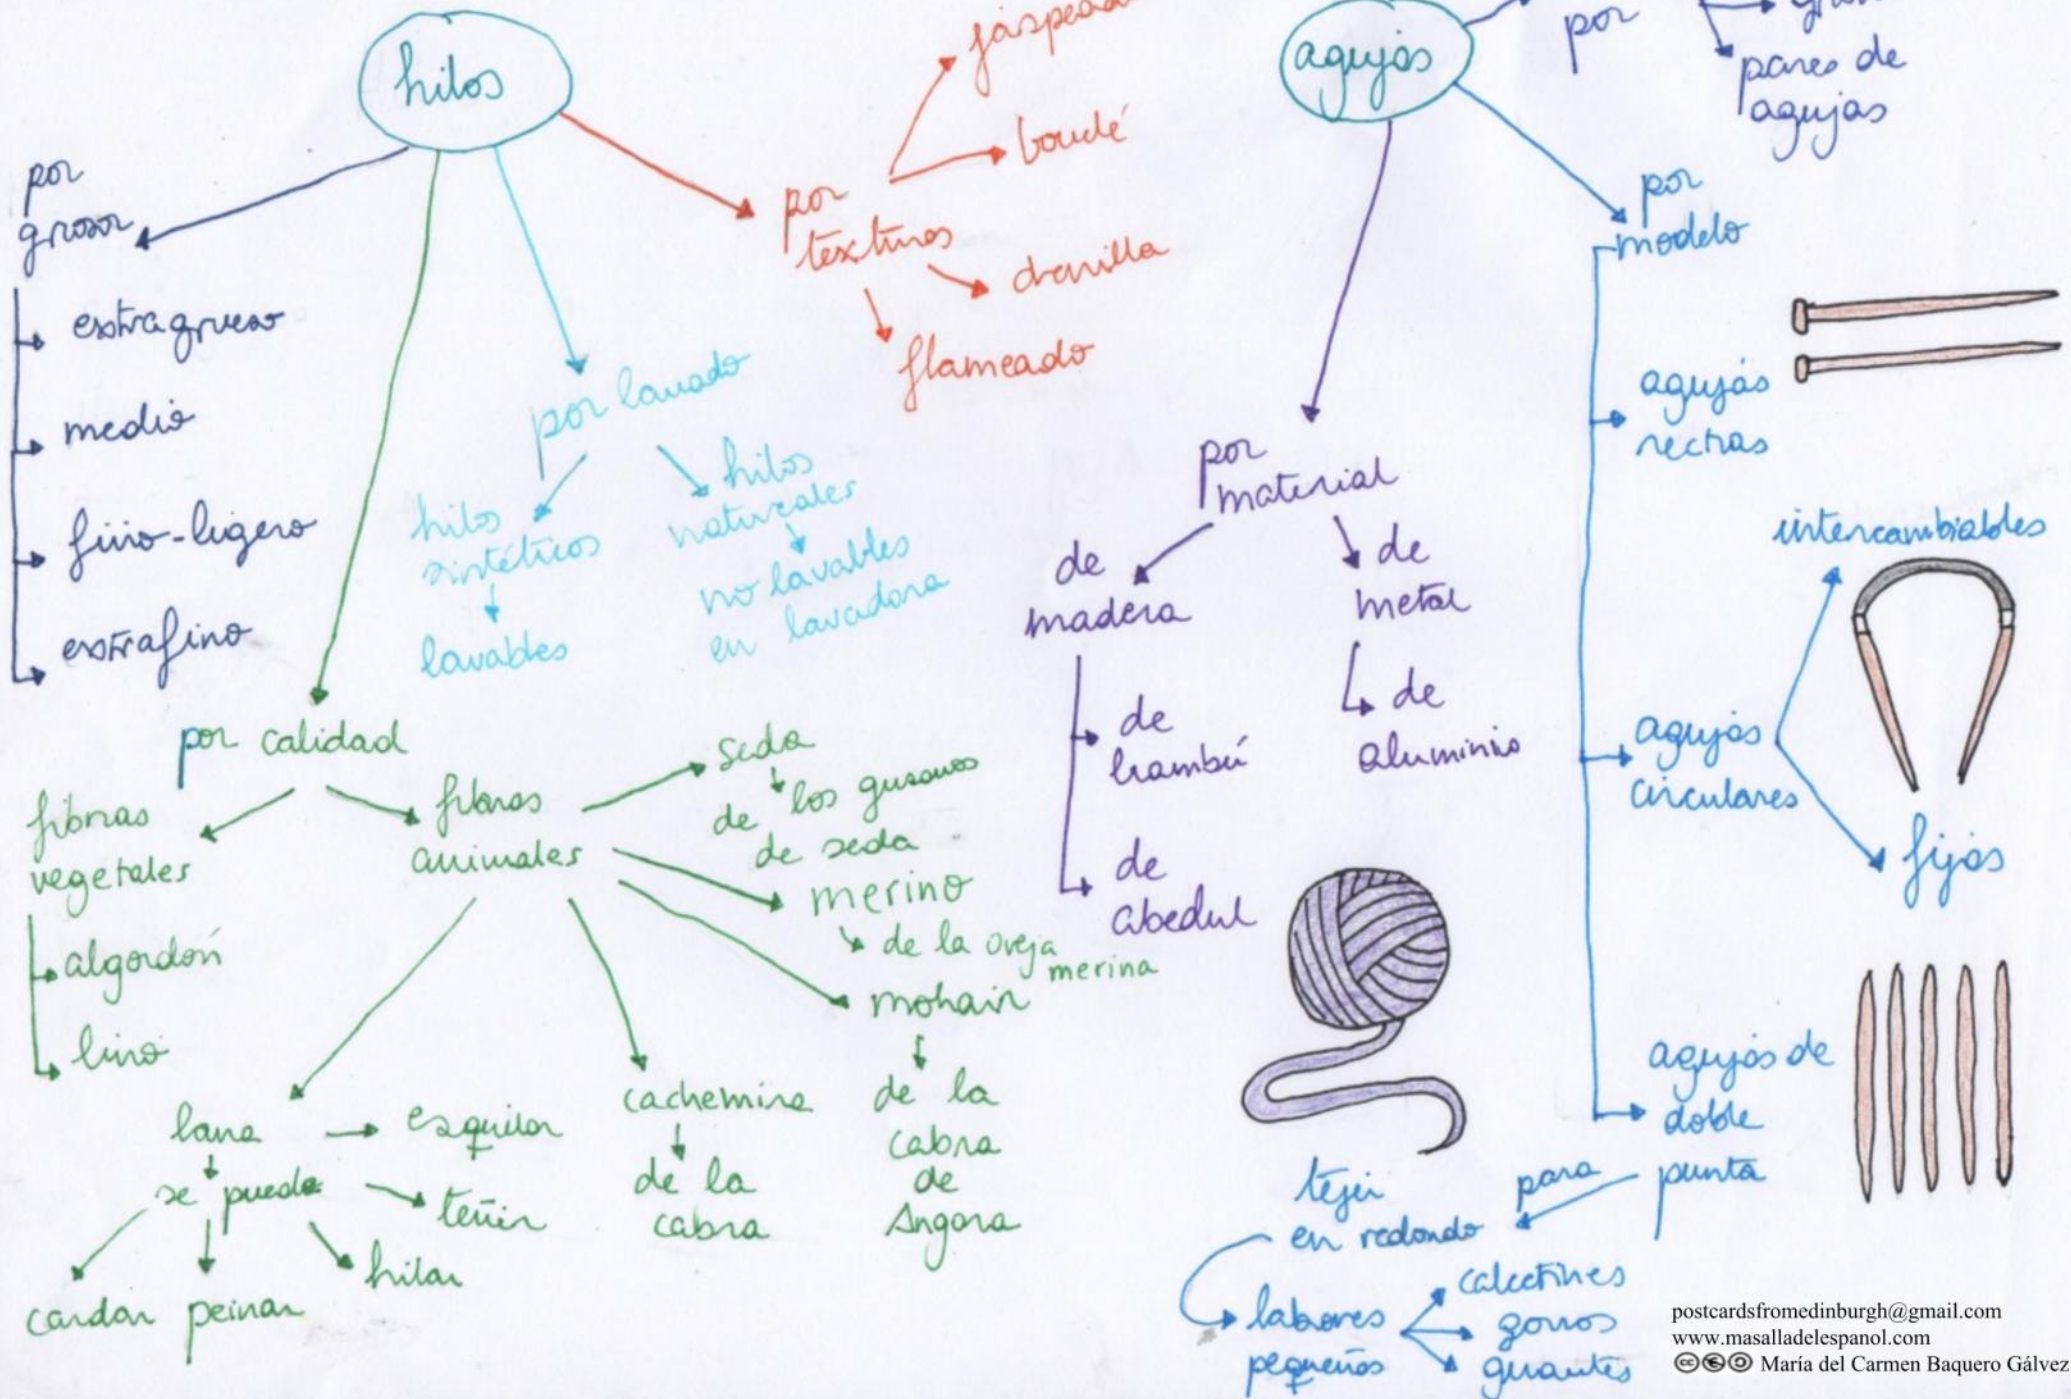 hilos
por
grosor
extragrueso
medio
fino-ligero
extrafino
por calidad
fibras
vegetales
algordón
lino
fibras
animales
seda
de los gusanos
de seda
merino
de la oveja
merina
mohair
de la
cabra
de
Angora
cachemira
de la
cabra
lana
esquilar
se puede
teñir
hilar
peinar
cardar
por lavado
hilos
sintéticos
lavables
hilos
naturales
no lavables
en lavadora
por
texturas
bouclé
chenilla
flameado
agujas
por
pares de
agujas
por
modelo
agujas
rectas
agujas
circulares
intercambiables
fijas
agujas de
doble
punta
para
tejer
en redondo
labores
pequeños
calcetines
gorros
guantes
por
material
de
madera
de
bambú
de
abedul
de
metal
de
aluminio
postcardsfromedinburgh@gmail.com
www.masalladelespanol.com
María del Carmen Baquero Gálvez